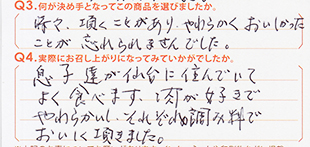 Q3.何が決め手となってこの商品を選びましたか。
時々、頂くことがあり、やわらかくおいしかった
ことが忘れられませんでした。
Q4.実際にお召し上がりになってみていかがでしたか。
息子達が仙台に住んでいて
よく食べます、肉が好きで
やわらかいし、それぞれの調み料で
おいしく頂きました。